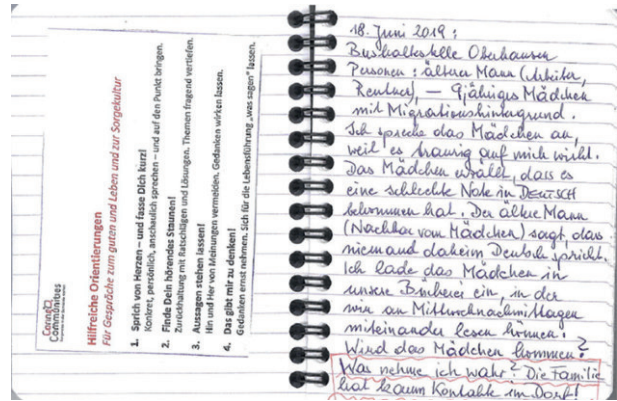 Connect
Communities
Hilfreiche Orientierungen
Für Gespräche zum guten und Leben und zur Sorgekultur
1. Sprich von Herzen – und fasse Dich kurz!
Konkret, persönlich, anschaulich sprechen – und auf den Punkt bringen.
2. Finde Dein hörendes Staunen!
Zurückhaltung mit Ratschlägen und Lösungen. Themen fragend vertiefen.
3. Aussagen stehen lassen!
Hin und Her von Meinungen vermeiden. Gedanken wirken lassen.
4. Das gibt mir zu denken!
Gedanken ernst nehmen. Sich für die Lebensführung „was sagen“ lassen.
18. Juni 2019:
Bushaltestelle Oberhausen
Personen: älterer Mann
Rentner), – 9jähriges Mädchen
mit Migrationshintergrund.
Ich spreche das Mädchen an,
weil es traurig auf mich wirkt.
Das Mädchen erzählt, dass es
eine schlechte Note in DEUTSCH
bekommen hat. Der ältere Mann
(Nachbar vom Mädchen) sagt, dass
niemand daheim Deutsch spricht.
Ich lade das Mädchen in
unsere Bücherei ein, in der
wir an Mittwochnachmittagen
miteinander lesen können.
Wird das Mädchen kommen?
Was nehme ich wahr? Die Familie
hat kaum Kontakte im Dorf!